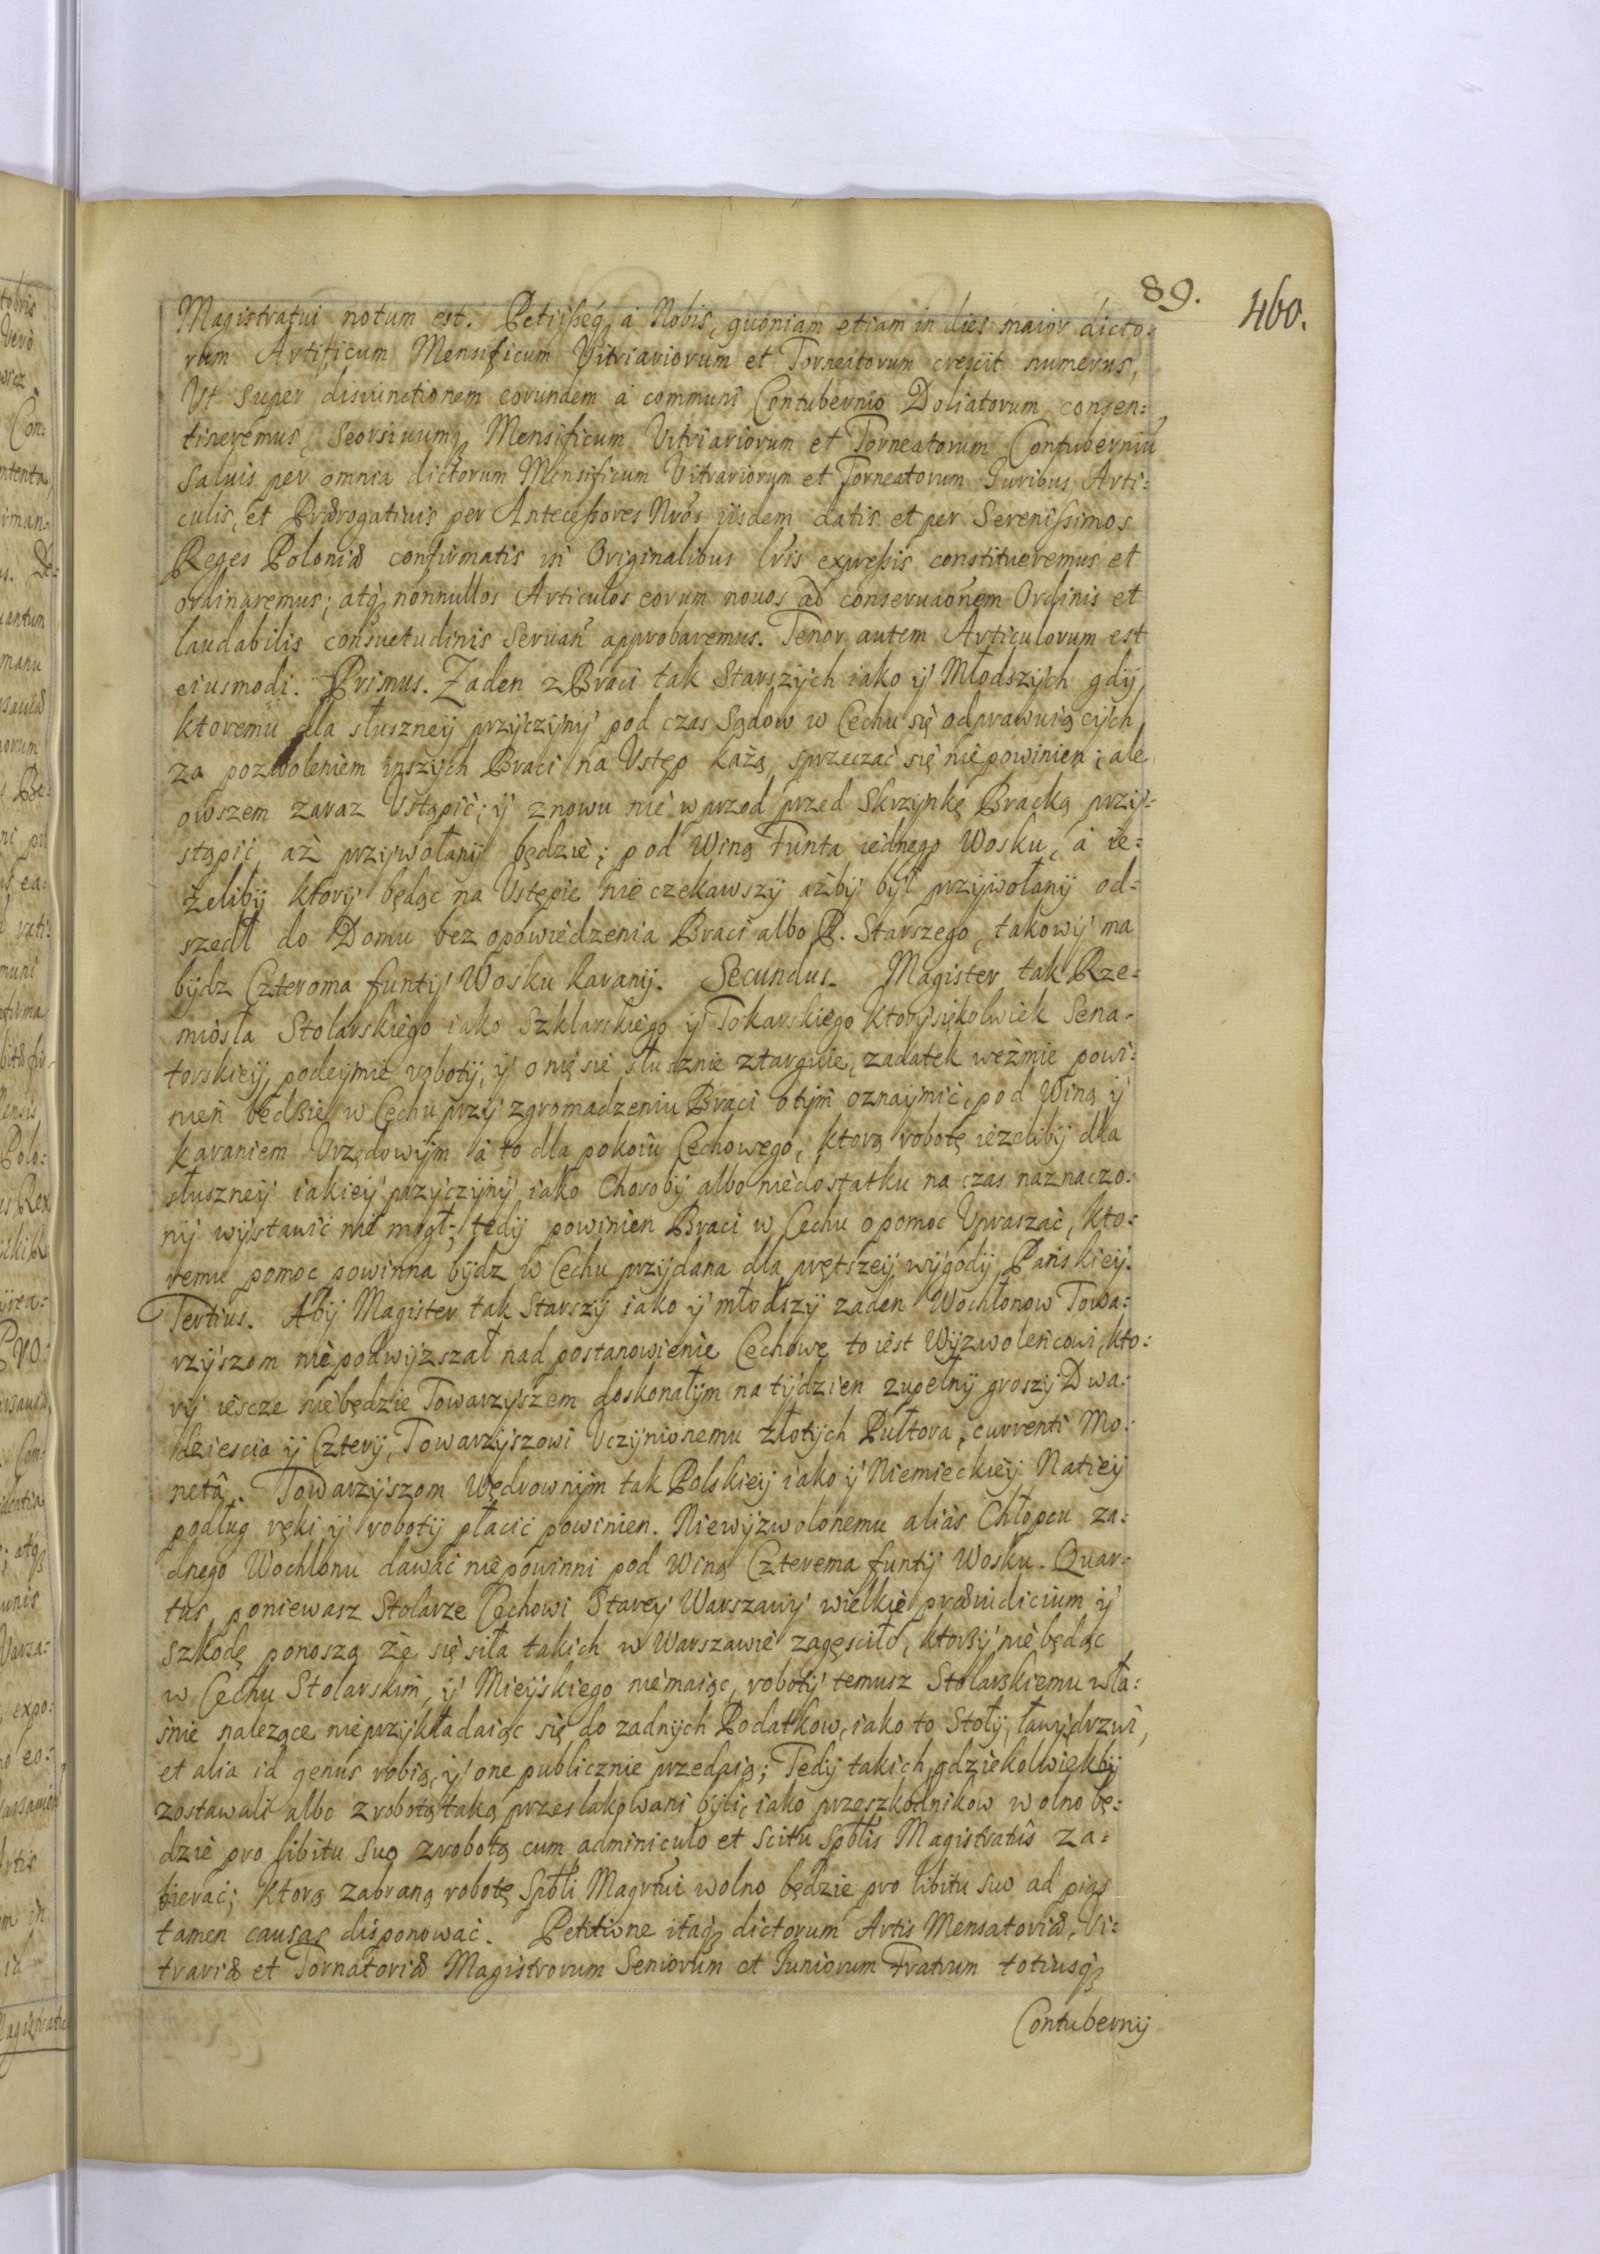 89.
460.
Magistratui notum est. Petiisseq́ a Nobis, quoniam etiam in dies maior dicto:
rum Artificum Mensificum Vitriariorum et Torneatorum crescit numerus,
Ut super disiunctionem eorundem a communi Contubernio Doliatorum consen:
tiremus, Seorsiuumq́ Mensificum Vitriariorum et Torneatorum Contuberniũ
Saluis per omnia dictorum Mensificum Vitrariorum et Torneatorum Iuribus, Arti:
culis, et Prærogatiuis per Antecessores Nrõs iisdem datis et per Serenissimos
Reges Poloniæ confirmatis in Originalibus lr̃is expressis constitueremus et
ordinaremus; atq́ nonnullos Articulos eorum nouos ad conseruaõnem Ordinis et
laudabilis consuetudinis Seruañ approbaremus. Tenor autem Articulorum est
eiusmodi. Primus. Zaden z Braci tak Starszych iako ÿ Młodszych gdÿ
ktoremu dla słuszneÿ przÿczÿnÿ pod czas Sądow w Cechu się odprawuiącÿch
za pozwoleniem inszÿch Braci na Vstęp każą, sprzeczać się niepowinien; ale
owszem zaraz Vstąpić; ÿ znowu nie wprzod przed Skrzynkę Bracką przÿ:
stąpić, aż przÿwołanÿ będzie; pod Winą Funta iednego Wosku, a ie:
żelibÿ ktorÿ będąc na Vstępie nie czekawszÿ ażbÿ bÿł przÿwołanÿ od:
szedł do Domu bez opowiedzenia Braci albo P. Starszego, takowÿ ma
bÿdz Czteroma funtÿ Wosku karanÿ. Secundus. Magister tak Rze:
miosła Stolarskiego iako Szklarskiego ÿ Tokarskiego ktorÿsiękolwiek Sena:
torskieÿ podeÿmie robotÿ, ÿ o nię sie słusznie ztarguie, zadatek weźmie powi:
nien będzie w Cechu przÿ zgromadzeniu Braci otÿm oznaÿmić, pod Winą ÿ
karaniem Vrzędowÿm a to dla pokoiu Cechowego, ktorą robotę ieżelibÿ dla
słuszneÿ iakieÿ przÿczÿnÿ iako Chorobÿ albo niedostatku na czas naznaczo:
nÿ wÿstawić nie mogł; tedÿ powinien Braci w Cechu o pomoc Vpraszać, kto:
remu pomoc powinna bÿdz w Cechu przÿdana dla prętszeÿ wÿgodÿ Panskieÿ.
Tertius. Abÿ Magister tak Starszÿ iako ÿ młodszÿ zaden Wochlonow Towa:
rzÿszom nie podwÿzszał nad postanowienie Cechowe to iest Wÿzwolencowi, kto:
rÿ iescze niebędzie Towarzyszem doskonałÿm na tÿdzien zupełnÿ groszÿ Dwa:
dziescia ÿ Czterÿ, Towarzÿszowi Vczÿnionemu złotÿch Pułtora, currenti Mo:
netâ. Towarzÿszom Wędrownÿm tak Polskieÿ iako ÿ Niemieckieÿ Natieÿ
podług ręki ÿ robotÿ płacić powinien. Niewÿzwolonemu aliàs Chłopcu za:
dnego Wochlonu dawać niepowinni pod Winą Czterema funtÿ Wosku. Quar:
tus, poniewasz Stolarze Cechowi Stareÿ Warszawÿ wielkie præiudicium ÿ
szkodę ponoszą że się siła takich w Warszawie zagęsciło, ktorzÿ niebędąc
w Cechu Stolarskim, ÿ Mieÿskiego niemaiąc, robotÿ temusz Stolarskiemu wła:
śnie nalezące nieprzÿkładaiąc się do zadnÿch Podatkow, iako to Stołÿ, ławÿ, drzwi,
et alia id genus robią, ÿ one publicznie przedaią; Tedÿ takich gdziekolwiekbÿ
zostawali albo z robotą taką przeslakowani bÿli, iako przeszkodnikow wolno bę:
dzie pro libitu suo z robotą cum adminiculo et scitu Spbłis Magistratûs za:
bierać; ktorą zabraną robotę Spbłi Magrtui wolno będzie pro libitu suo ad pias
tamen causas disponować. Petitione itaq́ dictorum Artis Mensatoriæ, Vi:
trariæ et Tornatoriæ Magistrorum Seniorum et Iuniorum Fratrum totiusq́
Contubernÿ